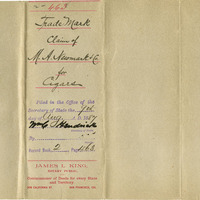 No 663
Trade Mark
Claim of
M. A. Newmark & Co
for
Cigars
Filed in the Office of the
Secretary of State the
day of Aug 1887
Wm C. Hendricks
Secretary of State
By
Deputy
Record Book 2 Page 663
JAMES L. KING,
NOTARY PUBLIC,
Commissioner of Deeds for every State
and Territory
SAN FRANCISCO, CAL.